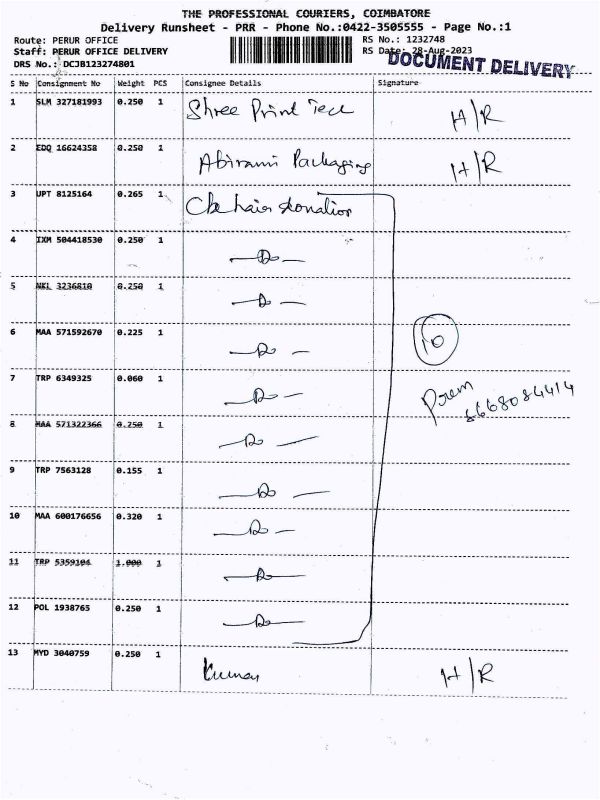 THE PROFESSIONAL COURIERS, COIMBATORE
Delivery Runsheet - PRR - Phone No.:0422-3505555 - Page No.:1
Route: PERUR OFFICE RS No.: 1232748
Staff: PERUR OFFICE DELIVERY RS Date: 28-Aug-2023
DOCUMENT DELIVERY
DRS No.: DCJB123274801
S No Consignment No Weight PCS Consignee Details Signature
1 SLM 327181993 0.250 1 Shree Print Tech H/R
2 EDQ 16624358 0.250 1 Abirami Packaging H/R
3 UPT 8125164 0.265 1 Cbe hair donation
4 IXM 504418530 0.250 1 -Do-
5 NKL 3236810 0.250 1 -Do-
6 MAA 571592670 0.225 1 -Do-
10
7 TRP 6349325 0.060 1 -Do-
Prem
8 MAA 571322366 0.250 1 -Do-
9 TRP 7563128 0.155 1 -Do-
10 MAA 600176656 0.320 1 -Do-
11 TRP 5359104 1.000 1 -Do-
12 POL 1938765 0.250 1 -Do-
13 MYD 3040759 0.250 1 Kumar H/R